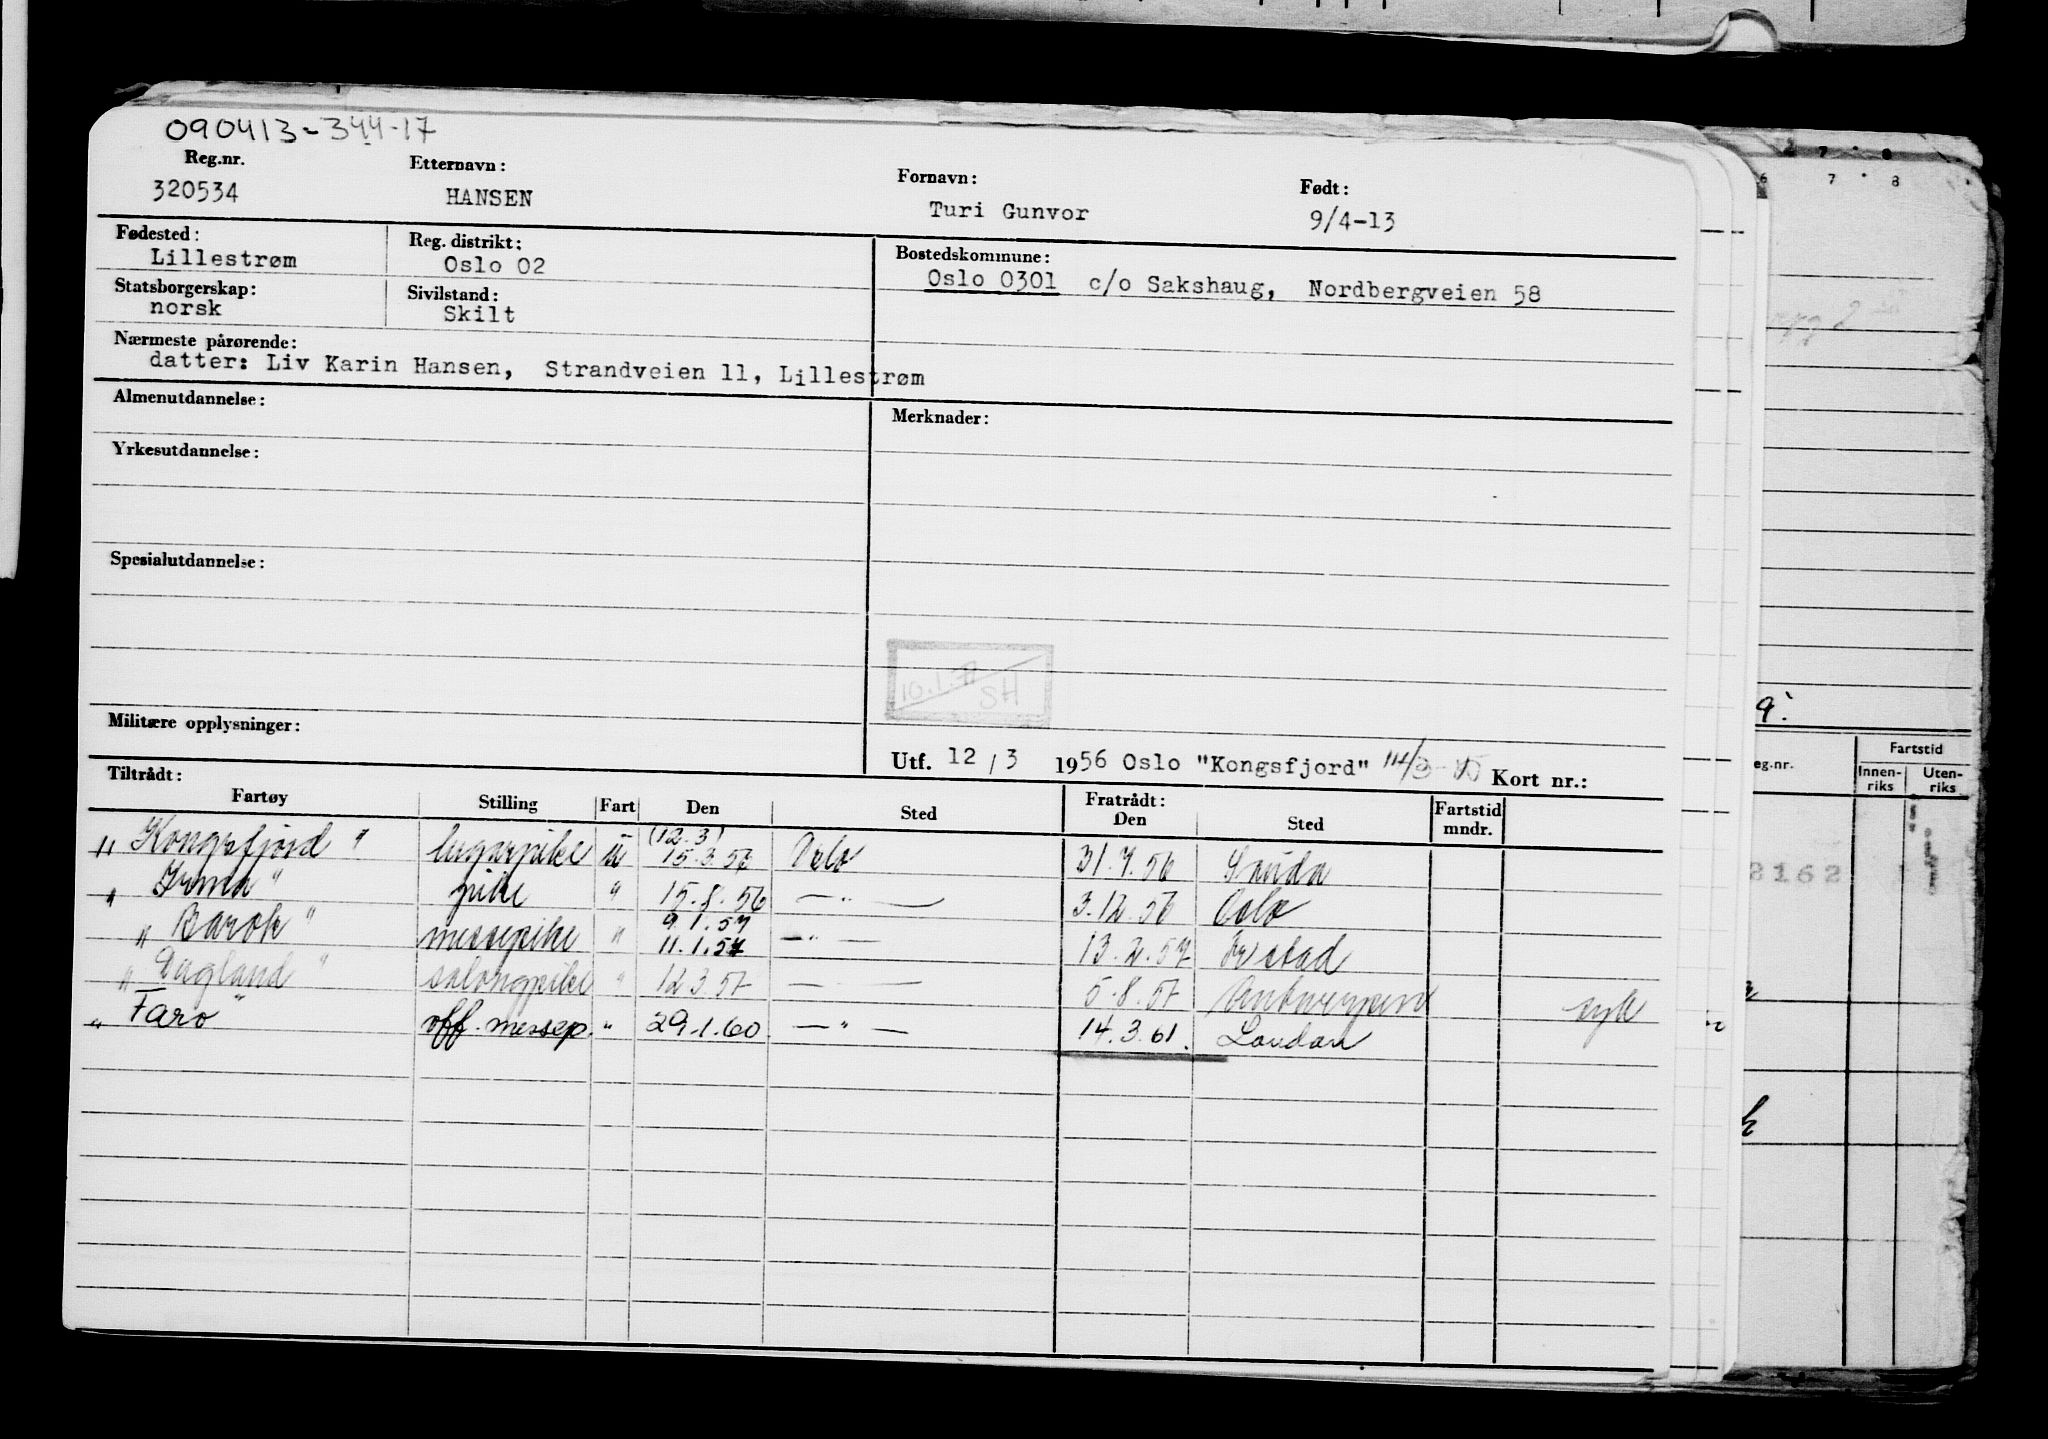 090413-344-17
Reg.nr. Etternavn: Fornavn: Født:
320534 HANSEN Turi Gunvor 9/4-13
Fødested: Reg. distrikt: Bostedskommune:
Lillestrøm Oslo 02 Oslo 0301 c/o Sakshaug, Nordbergveien 58
Statsborgerskap: Sivilstand:
norsk Skilt
Nærmeste pårørende:
datter: Liv Karin Hansen, Strandveien 11, Lillestrøm
Almenutdannelse: Merknader:
Yrkesutdannelse:
Spesialutdannelse:
SH
Militære opplysninger:
Utf. 12/3 1956 Oslo "Kongsfjord" Kort nr.:
Tiltrådt: Fratrådt: Fartstid
Fartøy Stilling Fart Den Sted Den Sted mndr.
(12.3)
"Kongsfjord" lugarpike u 15.3.56 Oslo 31.7.56 Sauda
"Irma" pike " 15.8.56 —"— 3.12.56 Oslo
9.1.57
"Barok" messepike " 11.1.57 —"— 13.2.57 Fr.stad
"Dagland" salongpike " 12.3.57 —— 5.8.57 Antwerpen syk
"Faro" off. messep. " 29.1.60 —"— 14.3.61. London
7 8
6 7 8
9.
eg.nr. Fartstid
Innen- Uten-
riks riks
2162